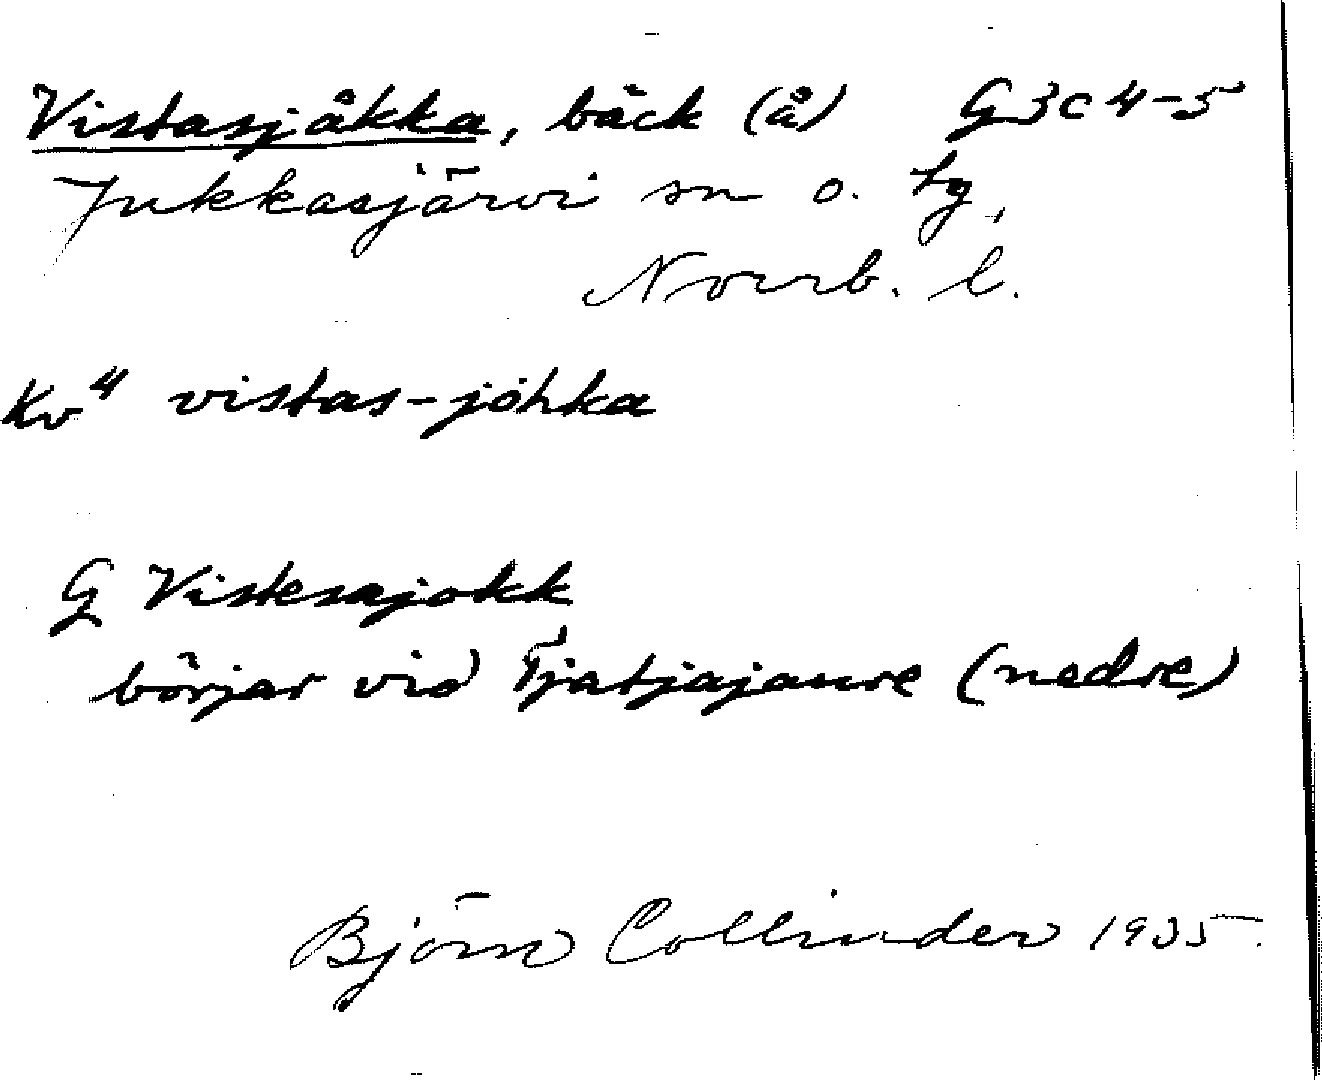 Vistasjåkka, bäck (å) G3c4-5
Jukkasjärvi sn o. tg,
Norrb. l.
Kv⁴ vistas-jòhka
G Vistesajokk
börjar vid Tjatjajaure (nedre)
Björn Collinder 1935.